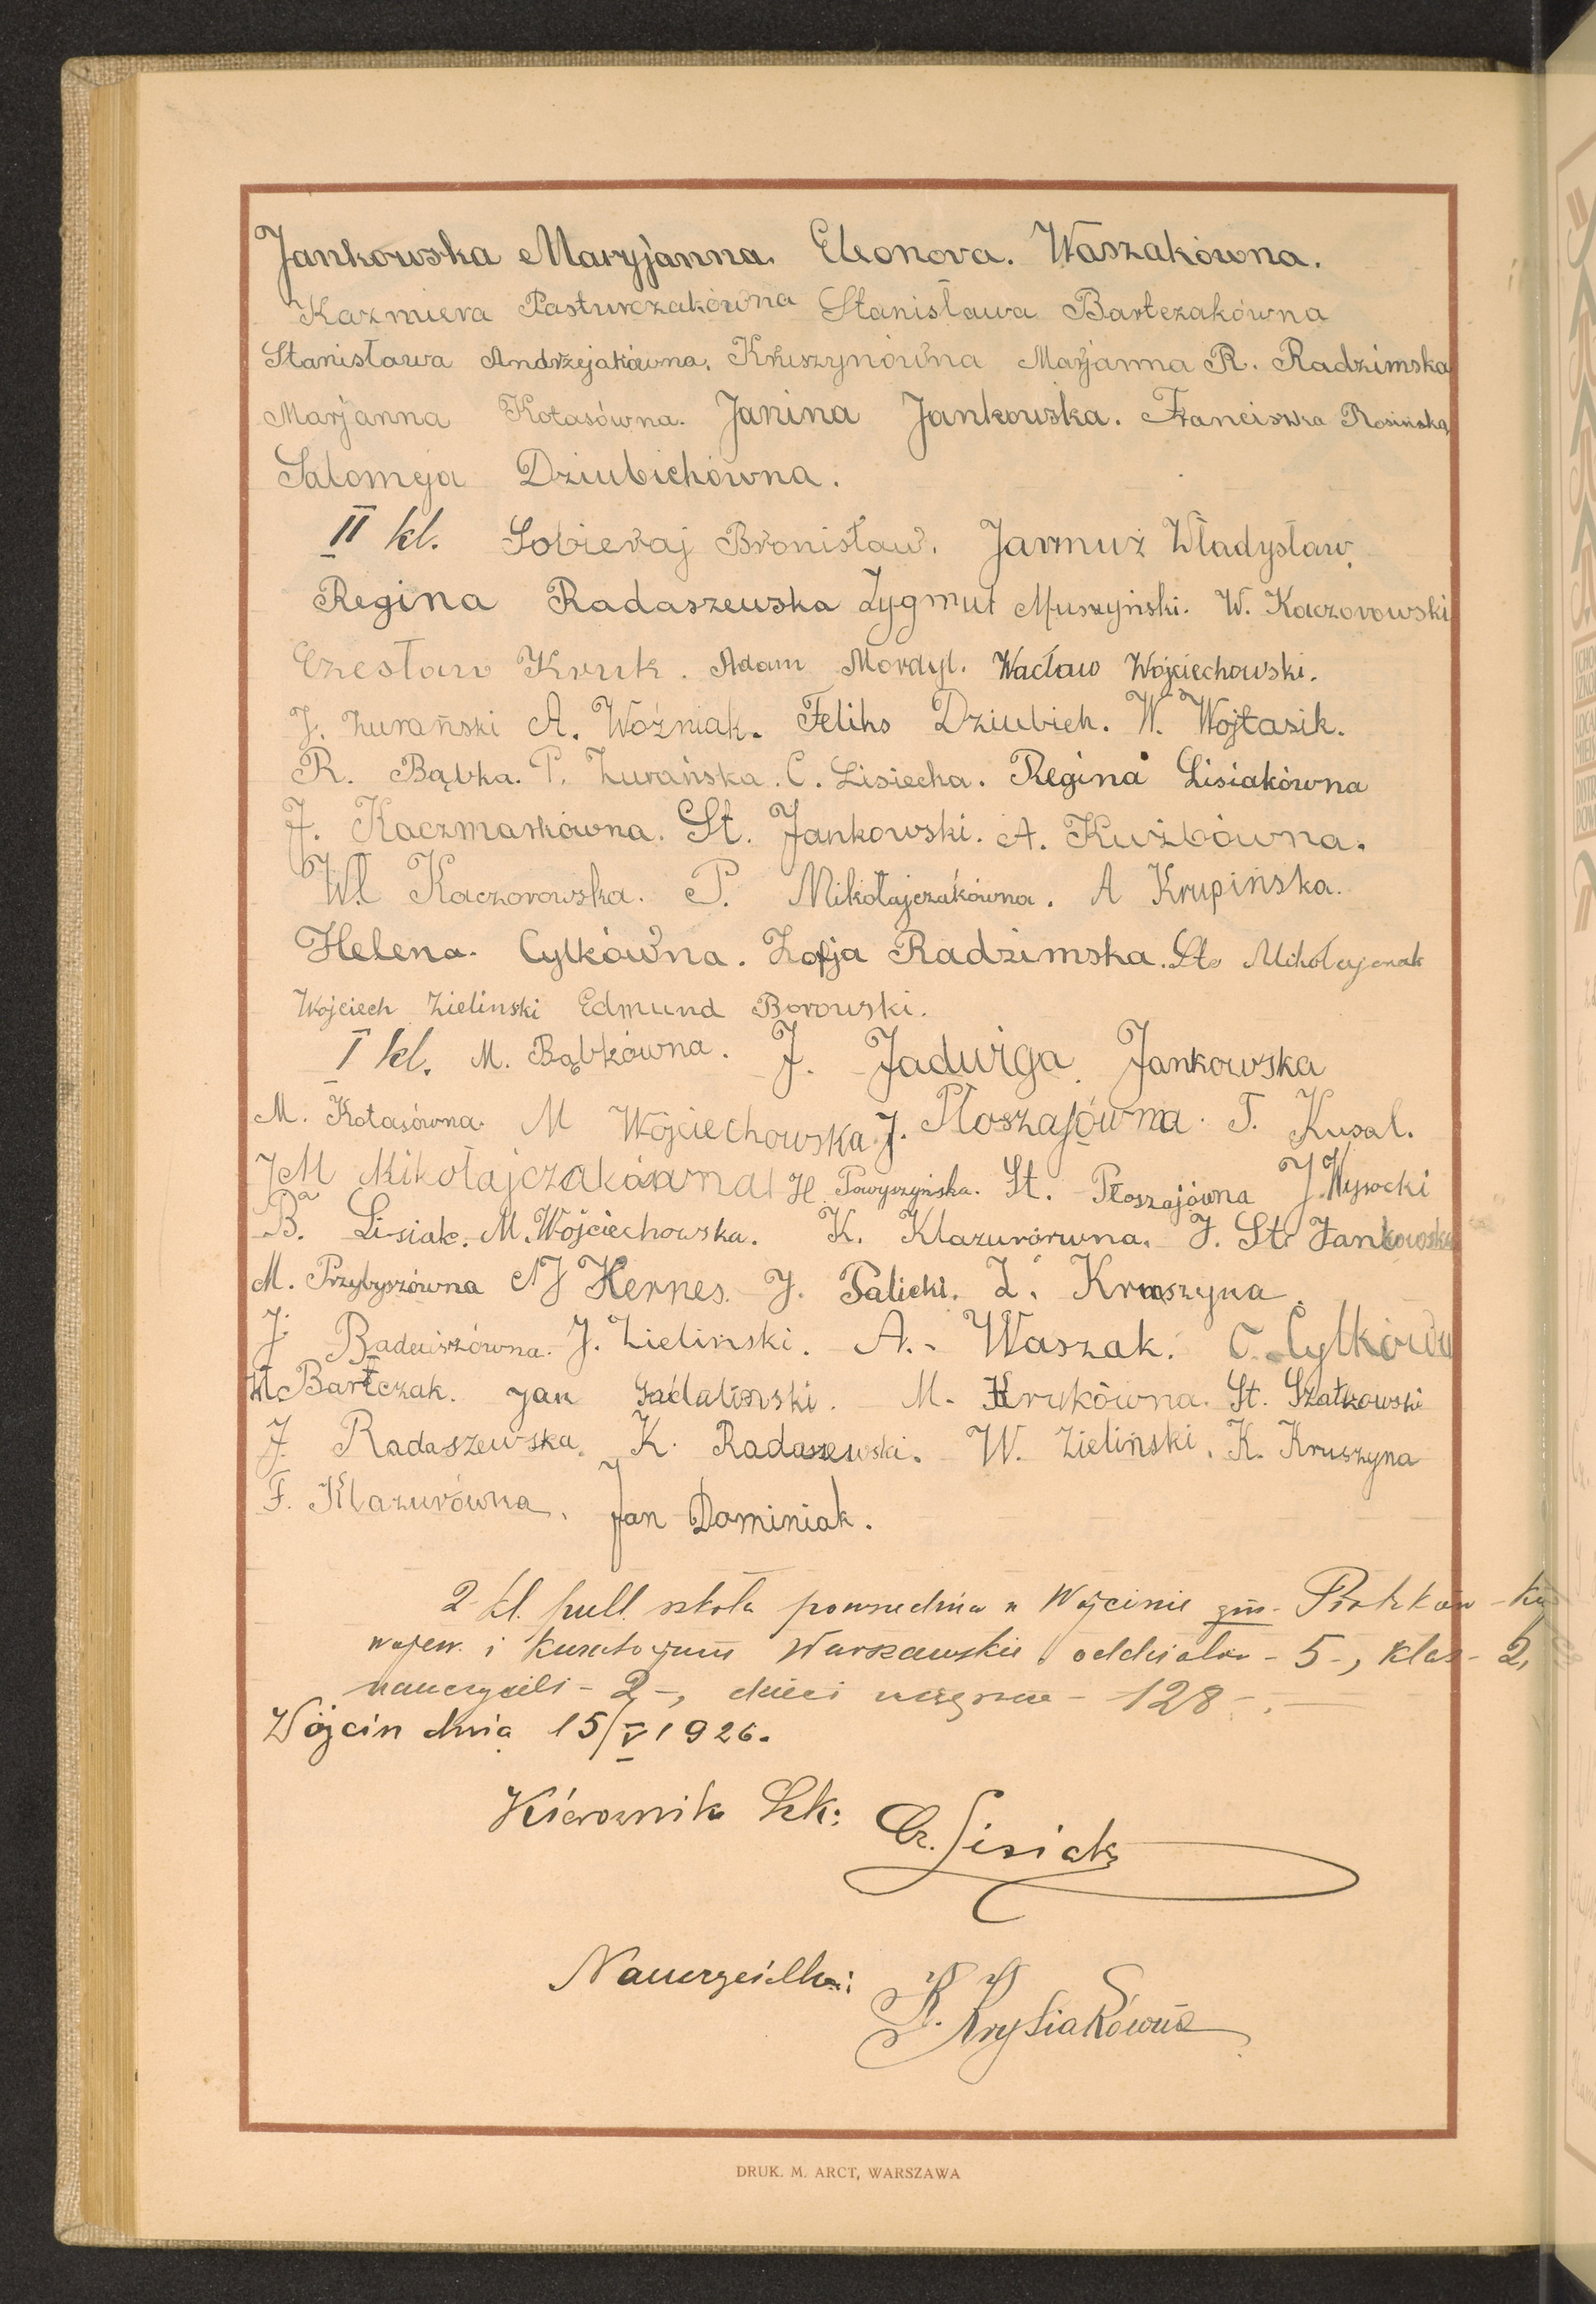 Jankowska Maryjanna. Eleonora. Waszakówna.
Kazmiera Pasturczakówna Stanisława Bartczakówna
Stanisława Andrzejakówna. Kruszynówna Marjanna R. Radzimska
Marjanna Kotasówna. Janina Jankowska. Franciszka Rosińska
Salomeja Dziubichówna.
II kl. Sobieraj Bronisław. Jarmuż Władysław.
Regina Radaszewska Zygmut Muszyński. W. Kaczorowski
Czesław Kruk. Adam Mordyl. Wacław Wojciechowski.
J. Żurański A. Woźniak. Feliks Dziubich. W. Wojtasik.
R. Bąbka. P. Żurańska. C. Lisiecka. Regina Lisiakówna
J. Kaczmarkówna. St. Jankowski. A. Kuźbówna.
Wł Kaczorowska. P. Mikołajczakówna. A Krupińska.
Helena. Cylkówna. Zofja Radzimska. St. Mikołajczak
Wojciech Zielinski Edmund Borowski.
I kl. M. Bąbkówna. J. Jadwiga Jankowska
M. Kotasówna. M Wojciechowska J. Płoszajówna. T. Kusal.
M Mikołajczakówna H. Powyszyńska. St. Płoszajówna J. Wysocki
B. Lisiak. M. Wojciechowska. K. Klazurówna. J. St. Jankowska
M. Przybyszówna J Hernes. J. Palicki. Z. Kruszyna.
J. Baduiszówna. J. Zielinski. A. Waszak. C. Cylkówn
W. Bartczak. Jan Sadaliński. M. Krukówna. St. Szatkowski
J. Radaszewska. K. Radaszewski. W. Zieliński. K. Kruszyna
F. Klazurówna. Jan Dominiak.
2 kl. publ. szkoła powszechna w Wójcinie gm. Piotrków - Kuj
wojew. i Kuratorjum Warszawskie, oddziałów - 5 -, klas - 2,
nauczycieli - 2 -, dzieci uczęszcz - 128 -.
Wójcin dnia 15/V 1926.
Kierownik Szk: Cz. Lisiak
Nauczycielka: K. Krysiakówna
DRUK. M. ARCT, WARSZAWA